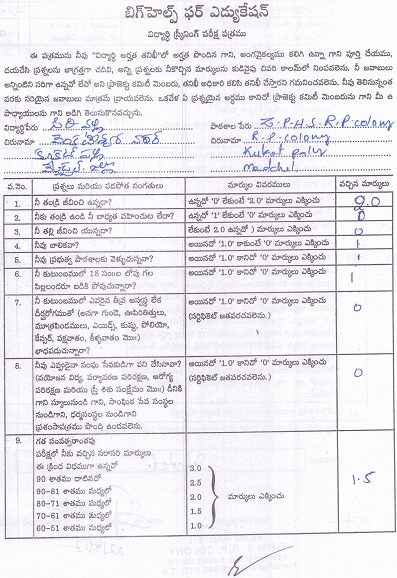 బిగ్‌హెల్ప్ ఫర్ ఎడ్యుకేషన్
విద్యార్థి స్క్రీనింగ్ పరీక్ష పత్రము
ఈ పత్రమును నీవు "విద్యార్థి అర్హత తనిఖీ"లో అర్హత పొందిన గాని, అంగవైకల్యము కలిగి ఉన్నా గాని పూర్తి చేయుము,
దయచేసి ప్రశ్నలను జాగ్రత్తగా చదివి, అన్ని ప్రశ్నలకు నీకొచ్చిన మార్కులను కుడివైపు చివరి కాలమ్‌లో నింపవలెను. నీ జవాబులు
అన్నింటిని సరిగ్గా ఉన్నవో లేవో అని ప్రాజెక్టు కమిటీ మెంబరు, తనిఖీ అధికారి కలిసి తనిఖీ చేస్తారని గమనించవలెను. నీవు తెలిసినంతవరకు
సరియైన జవాబులు మాత్రమే వ్రాయవలెను. ఒకవేళ ఏ ప్రశ్నయైన అర్థము కానిచో ప్రాజెక్టు కమిటీ మెంబరును గాని మీ ఉ
పాధ్యాయులను గాని అడిగి తెలుసుకొనవచ్చును.
విద్యార్థిపేరు
పాఠశాల పేరు Z.P.H.S.R.P.colony
చిరునామా
చిరునామా R.P.colony
Kukat pally
Madchel
వ.నెం. ప్రశ్నలు మరియు పరిచోత సంగతులు మార్కుల వివరములు వచ్చిన మార్కులు
1. నీ తండ్రి జీవించి ఉన్నడా? ఉన్నచో '0' లేకుంటే '2.0' మార్కులు ఎక్కించు 2.0
2. నీకు తండ్రి ఉండి నీ బాధ్యత వహించుట లేదా? ఉన్నచో '1' లేకుంటే '0' మార్కులు ఎక్కించు 0
3. నీ తల్లి జీవించి యున్నదా? లేకుంటే 2.0 ఉన్నచో ) మార్కులు ఎక్కించు 0
4. నీవు బాలికవా? అయినచో '1.0' కాకుంటే '0' మార్కులు ఎక్కించు 1
5. నీవు ప్రభుత్వ పాఠశాలకు వెళ్ళుచున్నావా? అయినచో '1.0' కానిచో '0' మార్కులు ఎక్కించు 1
6. నీ కుటుంబములో 18 సం॥ల లోపు గల
పిల్లలందరూ బడికి పోవుచున్నారా?
అయినచో '1.0' కానిచో '0' మార్కులు ఎక్కించు 1
7. నీ కుటుంబములో ఎవరైన తీవ్ర అస్వస్థ లేక
దీర్ఘరోగముతో (అనగా గుండె, ఊపిరితిత్తులు,
మూత్రపిండములు, ఎయిడ్స్, కుష్ఠు, పోలియో,
కేన్సర్, పక్షవాతం, కీళ్ళవాతం మొ॥)
భాధపడుచున్నారా?
అయినచో '1.0' కానిచో '0' మార్కులు ఎక్కించు
(సర్టిఫికెట్ జతపరచవలెను.)
0
8. నీవు ఎప్పుడైనా సంఘ సేవకుడిగా పని చేసినావా?
(వయోజన విద్య, పర్యావరణ పరిరక్షణ, ఆరోగ్య
పరిరక్షణ మరియు స్త్రీ శిశు సంక్షేమం మొ॥) దీనికి
గాని స్కూలునుండి గాని, సాంఘిక సేవ సంస్థల
నుండిగాని, ధర్మసంస్థల నుండిగాని
ప్రశంసాపత్రము పొంది ఉండవలెను.
అయినచో '1.0' కానిచో '0' మార్కులు ఎక్కించు
(సర్టిఫికెట్ జతపరచవలెను.)
0
9. గత సంవత్సరాంతపు
పరీక్షలో నీకు వచ్చిన సరాసరి మార్కులు
ఈ క్రింద విధముగా ఉన్నచో
90 శాతము దాటినచో 3.0
90-81 శాతము మధ్యలో 2.5
80-71 శాతము మధ్యలో 2.0
70-61 శాతము మధ్యలో 1.5
60-51 శాతము మధ్యలో 1.0
మార్కులు ఎక్కించు
1.5